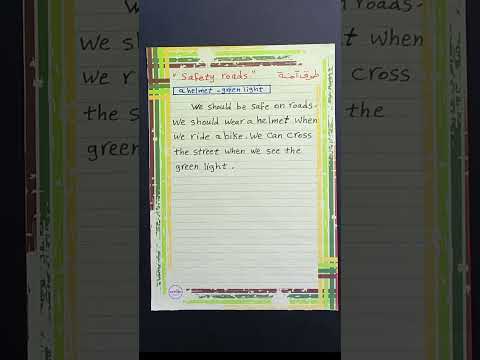 "Safety roads." طرق آمنة
a helmet - green light
We should be safe on roads.
We should wear a helmet when
we ride a bike. We can cross
the street when we see the
green light.